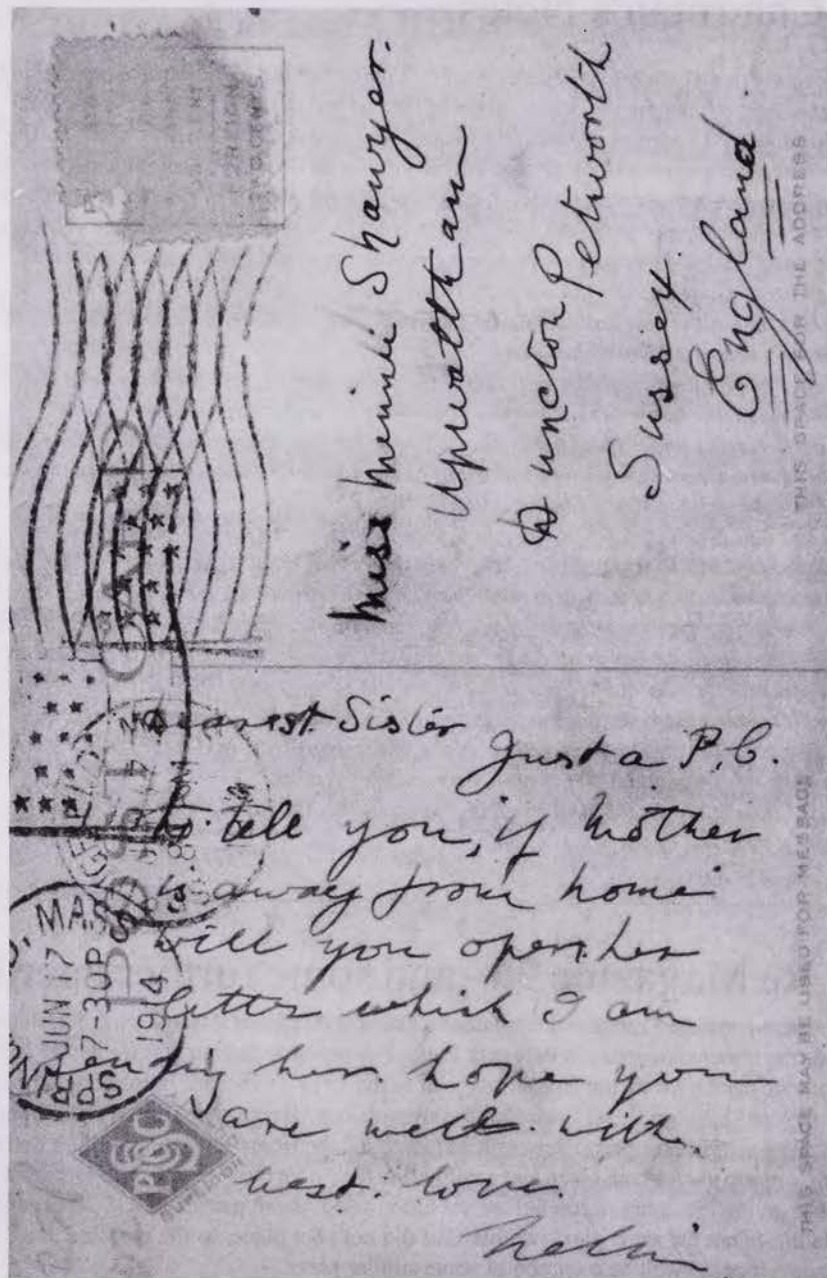 Miss Minnie Shawyer.
Upwaltham
Duncton Petworth
Sussex.
England
THIS SPACE FOR THE ADDRESS
POST CARD
Dearest Sister
Just a P.C.
to tell you, if Mother
is away from home
will you open her
letter which I am
sending her. hope you
are well. with
best. love.
THIS SPACE MAY BE USED FOR MESSAGE
MASS.
JUN 17
7-30P
1914